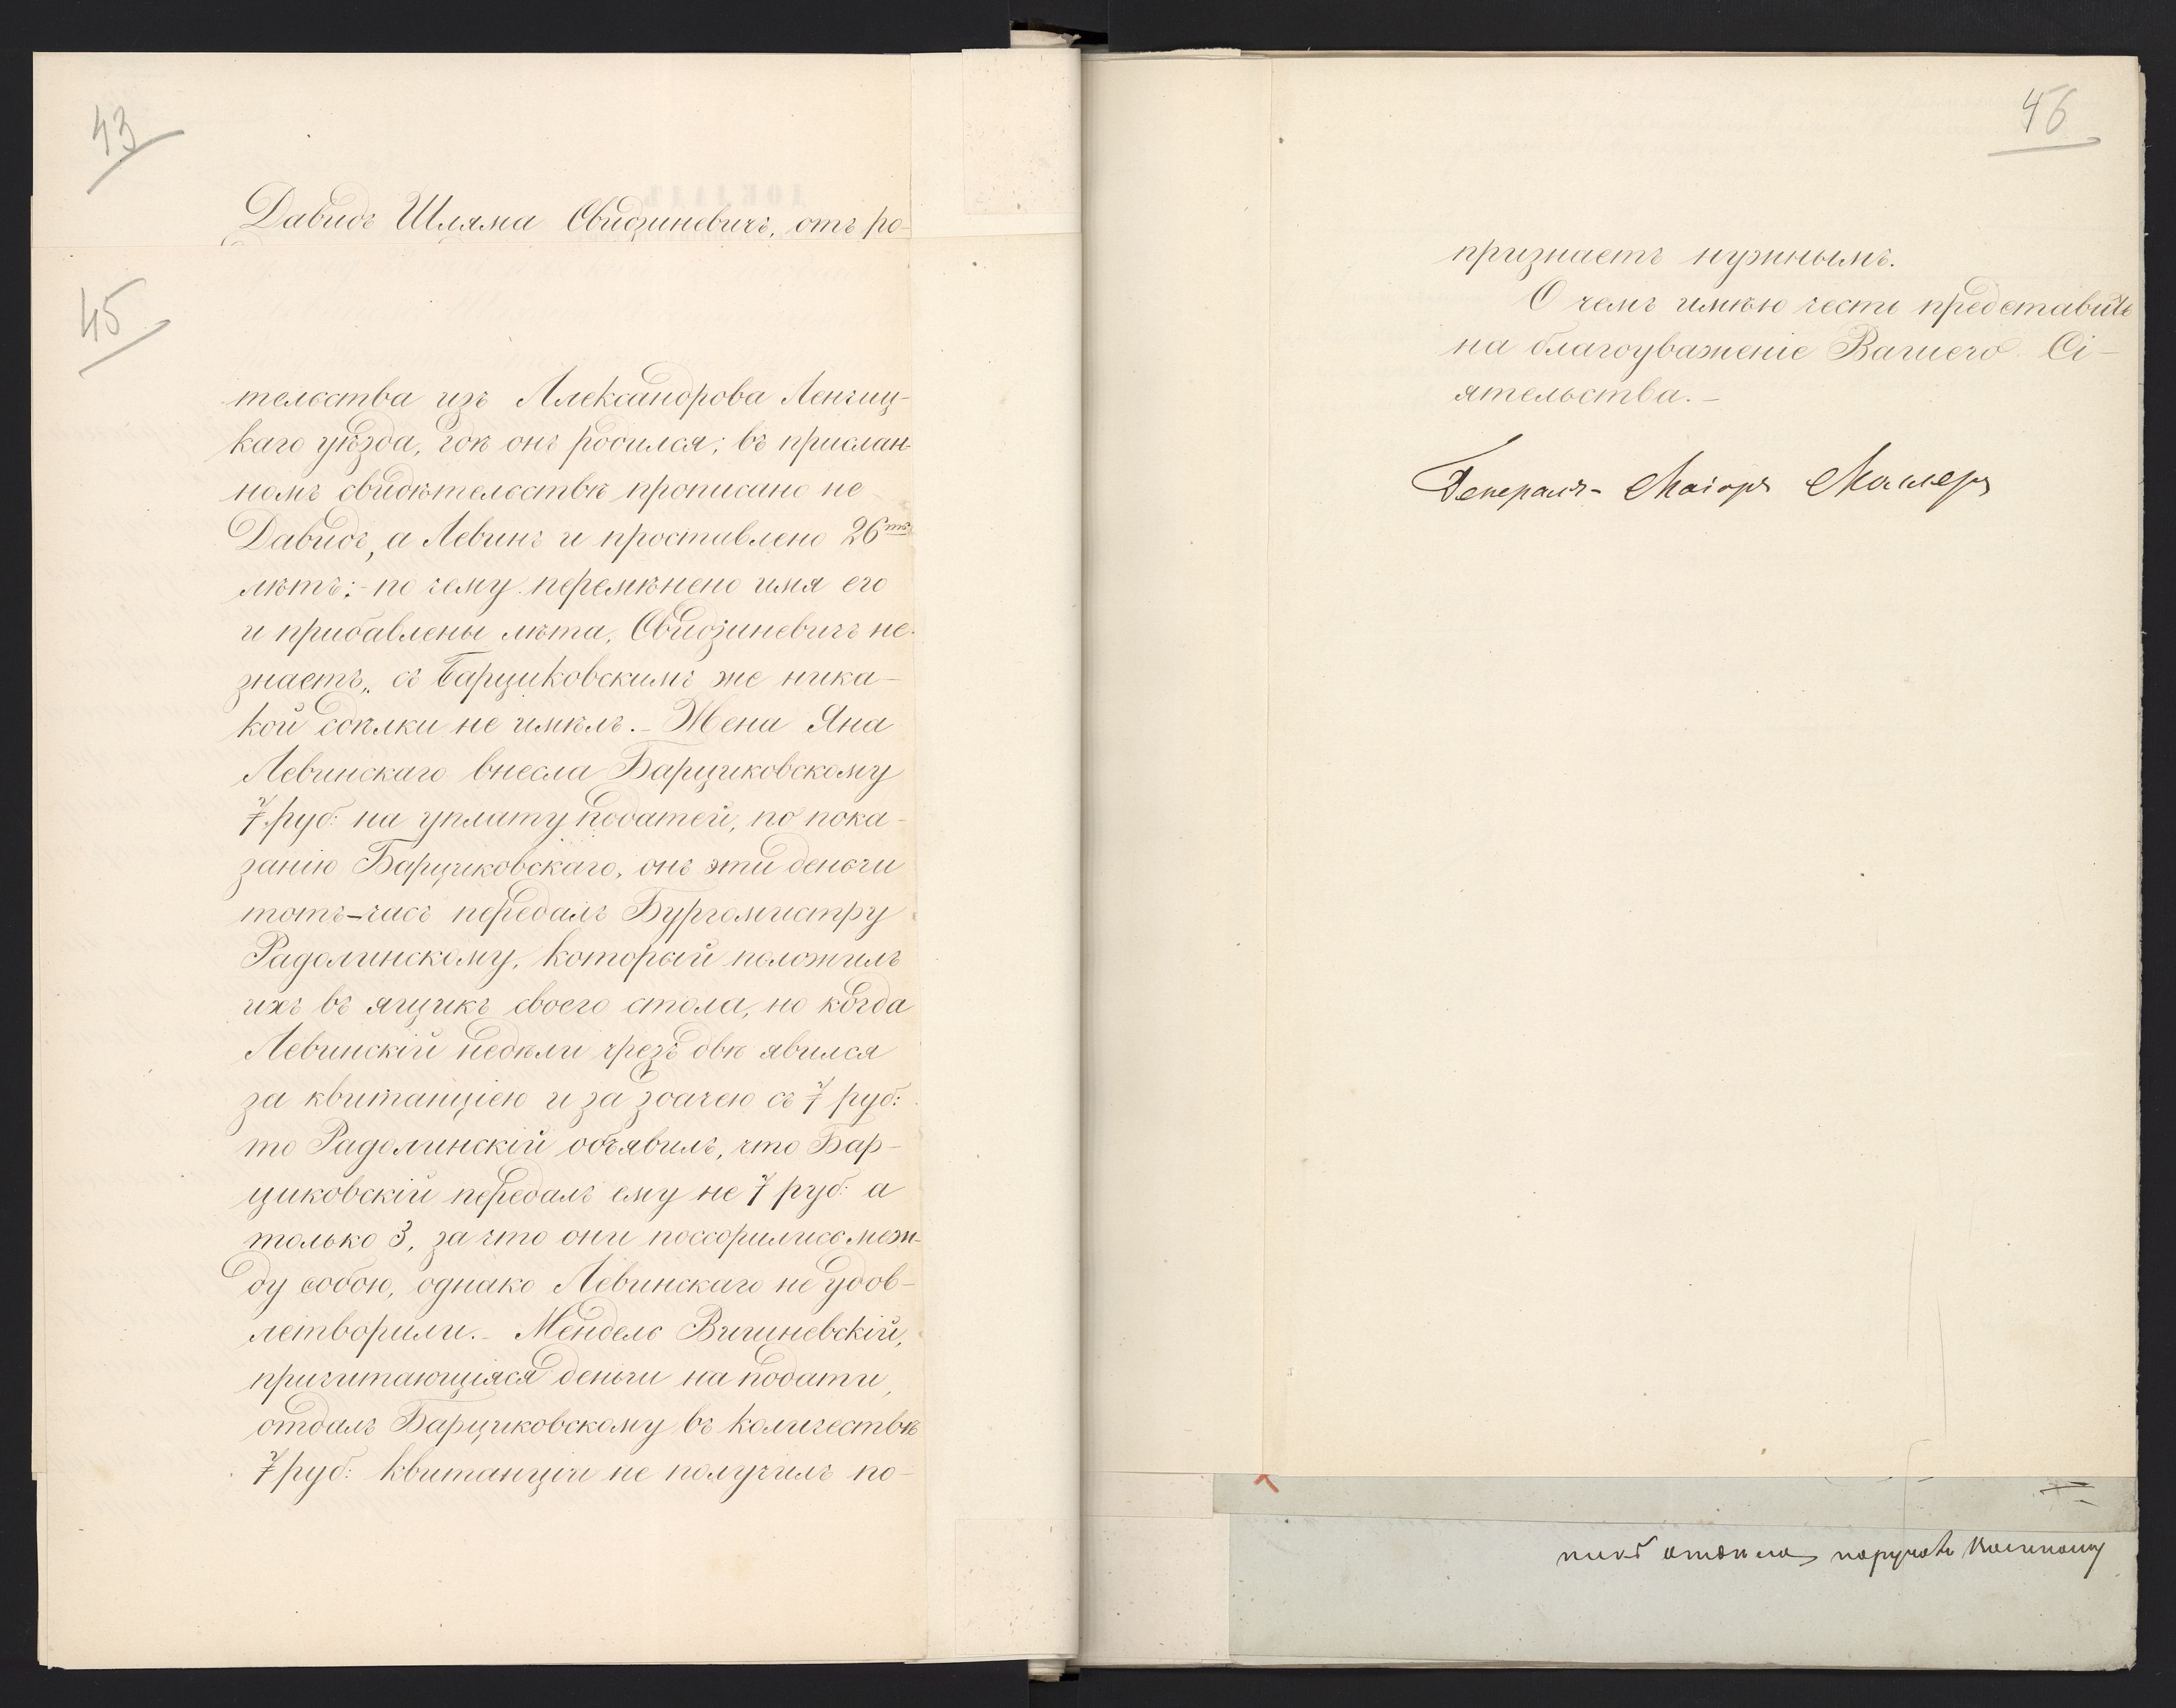 43
Давидъ Шляма Свидзиневичъ, отъ ро-
45
тельства изъ Александрова Ленчиц-
каго уѣзда, гдѣ онъ родился; въ прислан-
номъ свидѣтельствѣ прописано не
Давидъ, а Левинъ и проставлено 26ть
лѣтъ; - по чему перемѣнено имя его
и прибавлены лѣта, Свидзиневичъ не-
знаетъ, съ Барциковскимъ же ника-
кой сдѣлки не имѣлъ. - Жена Яна
Левинскаго внесла Барциковскому
7 руб: на уплату податей, по пока-
занію Барциковскаго, онъ эти деньги
тотъ-часъ передалъ Бургомистру
Радолинскому, который положилъ
ихъ въ ящикъ своего стола, но когда
Левинскій недѣли чрезъ двѣ явился
за квитанціею и за здачею съ 7 руб:
то Радолинскій объявилъ, что Бар-
циковскій передалъ ему не 7 руб: а
только 3, за что они поссорились меж-
ду собою, однако Левинскаго не удов-
летворили. - Мендель Вишневскій,
причитающіяся деньги на подати,
отдалъ Барциковскому въ количествѣ
7 руб: квитанціи не получилъ по-
46
признаетъ нужнымъ.
О чемъ имѣю честь представить
на благоуваженіе Вашего Сі-
ятельства. -
Генералъ-Маіоръ
поручать